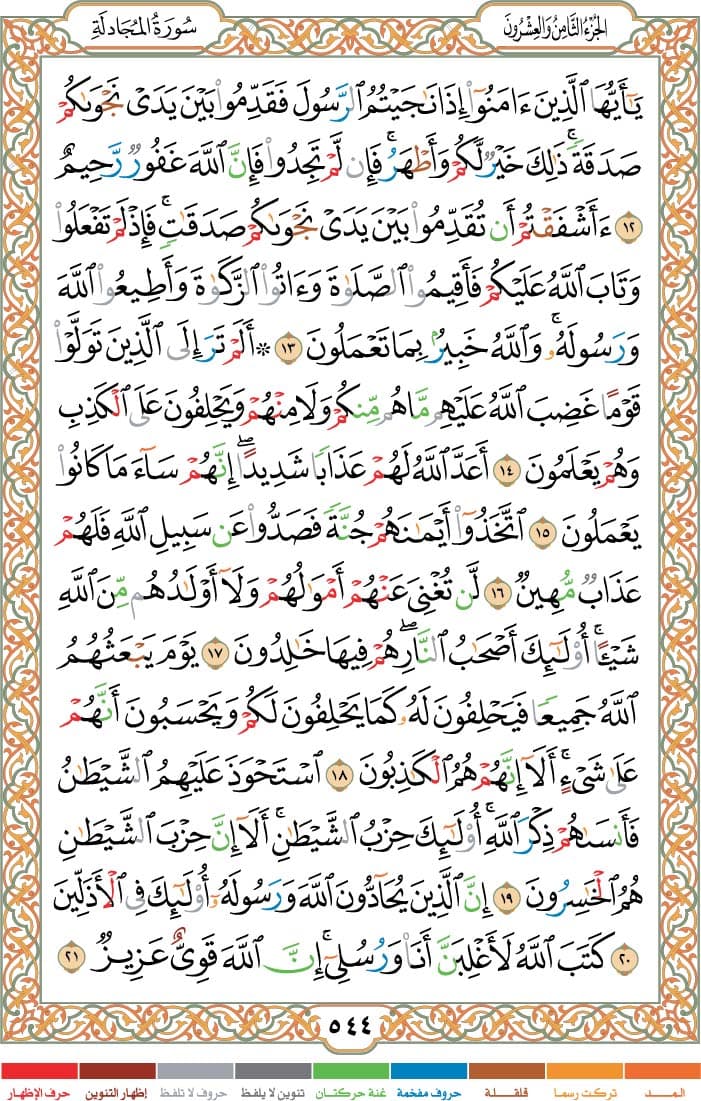 الجُزْءُ الثَّامِنُ وَالعِشْرُونَ
سُورَةُ المُجَادلَةِ
يَـٰٓأَيُّهَا ٱلَّذِينَ ءَامَنُوٓا۟ إِذَا نَـٰجَيْتُمُ ٱلرَّسُولَ فَقَدِّمُوا۟ بَيْنَ يَدَىْ نَجْوَىٰكُمْ
صَدَقَةً ۚ ذَٰلِكَ خَيْرٌ لَّكُمْ وَأَطْهَرُ ۚ فَإِن لَّمْ تَجِدُوا۟ فَإِنَّ ٱللَّهَ غَفُورٌ رَّحِيمٌ
١٢ ءَأَشْفَقْتُمْ أَن تُقَدِّمُوا۟ بَيْنَ يَدَىْ نَجْوَىٰكُمْ صَدَقَـٰتٍ ۚ فَإِذْ لَمْ تَفْعَلُوا۟
وَتَابَ ٱللَّهُ عَلَيْكُمْ فَأَقِيمُوا۟ ٱلصَّلَوٰةَ وَءَاتُوا۟ ٱلزَّكَوٰةَ وَأَطِيعُوا۟ ٱللَّهَ
وَرَسُولَهُۥ ۚ وَٱللَّهُ خَبِيرٌۢ بِمَا تَعْمَلُونَ ١٣ ۞ أَلَمْ تَرَ إِلَى ٱلَّذِينَ تَوَلَّوْا۟
قَوْمًا غَضِبَ ٱللَّهُ عَلَيْهِم مَّا هُم مِّنكُمْ وَلَا مِنْهُمْ وَيَحْلِفُونَ عَلَى ٱلْكَذِبِ
وَهُمْ يَعْلَمُونَ ١٤ أَعَدَّ ٱللَّهُ لَهُمْ عَذَابًا شَدِيدًا ۖ إِنَّهُمْ سَآءَ مَا كَانُوا۟
يَعْمَلُونَ ١٥ ٱتَّخَذُوٓا۟ أَيْمَـٰنَهُمْ جُنَّةً فَصَدُّوا۟ عَن سَبِيلِ ٱللَّهِ فَلَهُمْ
عَذَابٌ مُّهِينٌ ١٦ لَّن تُغْنِىَ عَنْهُمْ أَمْوَٰلُهُمْ وَلَآ أَوْلَـٰدُهُم مِّنَ ٱللَّهِ
شَيْـًٔا ۚ أُو۟لَـٰٓئِكَ أَصْحَـٰبُ ٱلنَّارِ ۖ هُمْ فِيهَا خَـٰلِدُونَ ١٧ يَوْمَ يَبْعَثُهُمُ
ٱللَّهُ جَمِيعًا فَيَحْلِفُونَ لَهُۥ كَمَا يَحْلِفُونَ لَكُمْ وَيَحْسَبُونَ أَنَّهُمْ
عَلَىٰ شَىْءٍ ۚ أَلَآ إِنَّهُمْ هُمُ ٱلْكَـٰذِبُونَ ١٨ ٱسْتَحْوَذَ عَلَيْهِمُ ٱلشَّيْطَـٰنُ
فَأَنسَىٰهُمْ ذِكْرَ ٱللَّهِ ۚ أُو۟لَـٰٓئِكَ حِزْبُ ٱلشَّيْطَـٰنِ ۚ أَلَآ إِنَّ حِزْبَ ٱلشَّيْطَـٰنِ
هُمُ ٱلْخَـٰسِرُونَ ١٩ إِنَّ ٱلَّذِينَ يُحَآدُّونَ ٱللَّهَ وَرَسُولَهُۥٓ أُو۟لَـٰٓئِكَ فِى ٱلْأَذَلِّينَ
٢٠ كَتَبَ ٱللَّهُ لَأَغْلِبَنَّ أَنَا۠ وَرُسُلِىٓ ۚ إِنَّ ٱللَّهَ قَوِىٌّ عَزِيزٌ ٢١
٥٤٤
المــد تركت رسما قلقلة حروف مفخمة غنة حركتان تنوين لا يلفظ حروف لا تلفظ إظهار التنوين حرف الإظهار